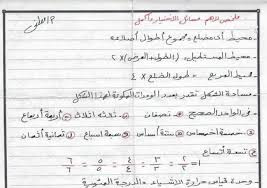 ملخص لأهم مسائل الاختيار وأكمل
محيط أى مضلع = مجموع أطوال أضلاعه
محيط المستطيل = (الطول + العرض) × ٢
محيط المربع = طول الضلع × ٤
مساحة الشكل تقدر بعدد الوحدات المكونة لهذا الشكل
فى الواحد الصحيح نصفان ثلاثة أثلاث أربعة أرباع
خمسة أخماس ستة أسداس سبعة أسباع ثمانية أثمان
تسعة أتساع
١ = ٢/٢ = ٣/٣ = ٤/٤ = ٥/٥ = ٦/٦
وحدة قياس درجة الحرارة الدرجة المئوية